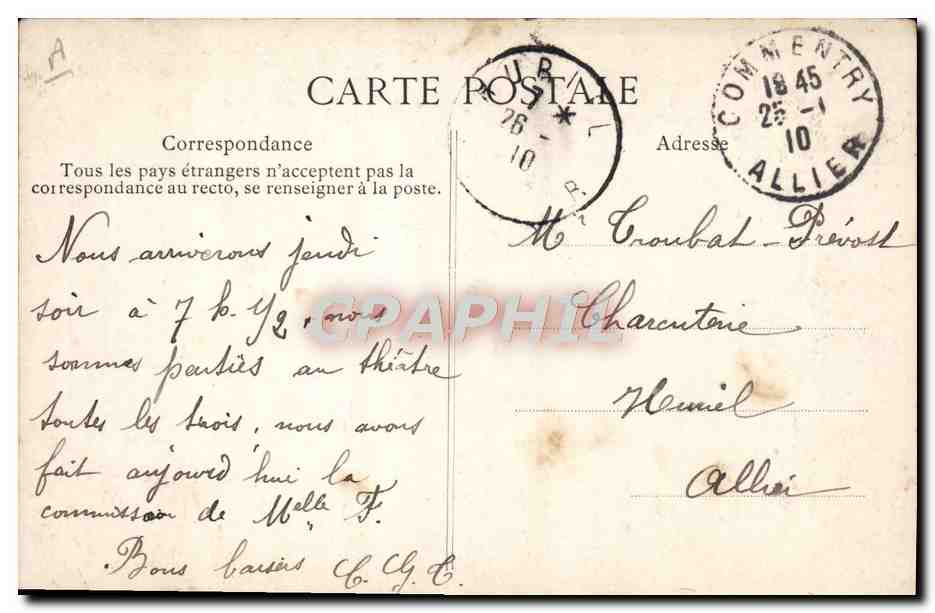 A
CARTE POSTALE
Correspondance
Tous les pays étrangers n'acceptent pas la
correspondance au recto, se renseigner à la poste.
Nous arriverons jeudi
soir à 7 h. 1/2, nous
sommes parties au théâtre
toutes les trois, nous avons
fait aujourd'hui la
commission de Melle F.
Bons baisers C. G. C.
7 *
26 -
10
COMMENTRY
18 45
25 -1
10
ALLIER
Adresse
Mr Troubat-Prévost
Charcuterie
Huriel
Allier
CPAPHIL